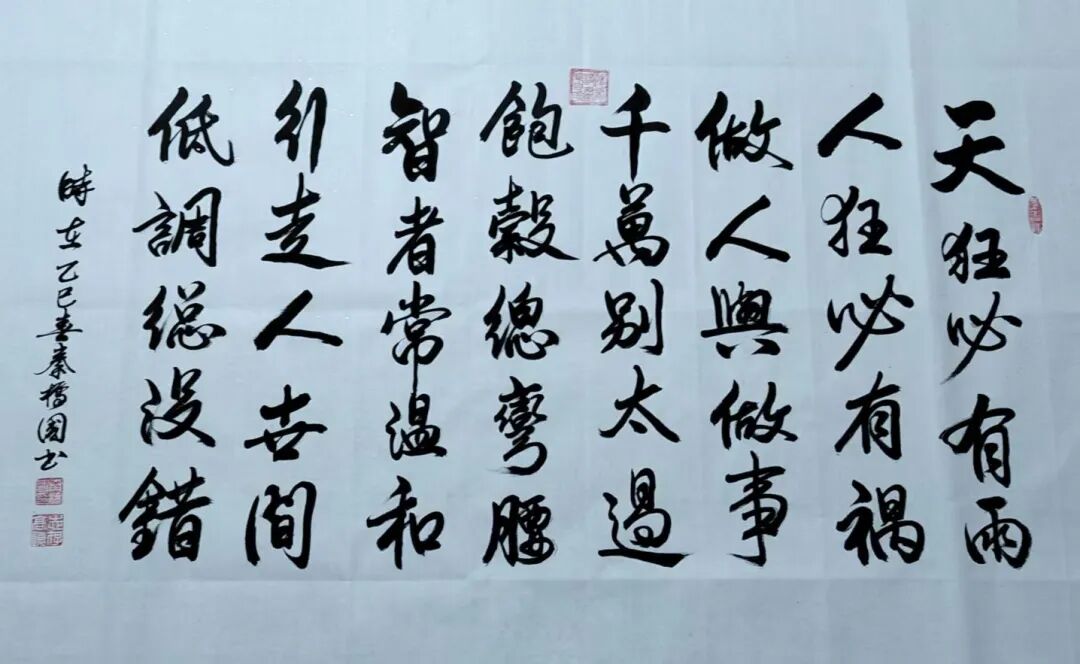 天狂必有雨
人狂必有禍
做人與做事
千萬别太過
飽穀總彎腰
智者常温和
行走人世間
低調總没錯
時在乙巳春秦橋國书